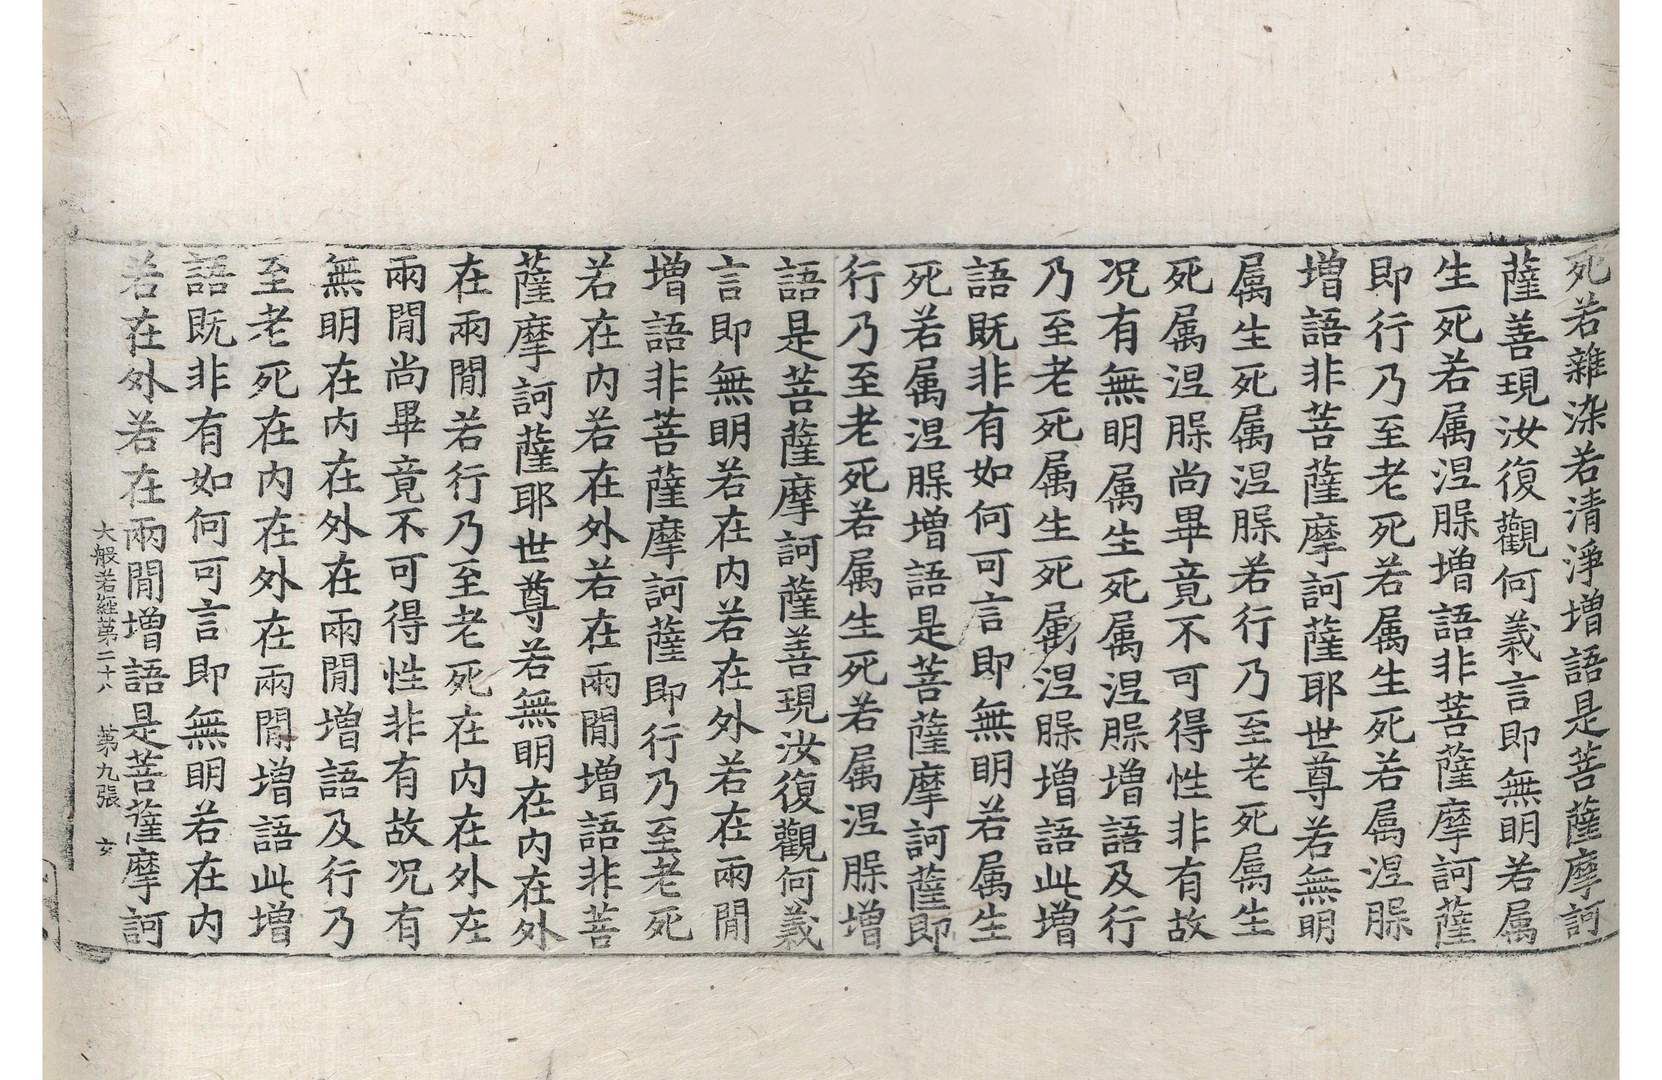 死若雜染若清淨增語是菩薩摩訶
薩善現汝復觀何義言即無明若属
生死若属涅槃增語非菩薩摩訶薩
即行乃至老死若属生死若属涅槃
增語非菩薩摩訶薩耶世尊若無明
属生死属涅槃若行乃至老死属生
死属涅槃尚畢竟不可得性非有故
况有無明属生死属涅槃增語及行
乃至老死属生死属涅槃增語此增
語既非有如何可言即無明若属生
死若属涅槃增語是菩薩摩訶薩即
行乃至老死若属生死若属涅槃增
語是菩薩摩訶薩善現汝復觀何義
言即無明若在内若在外若在兩閒
增語非菩薩摩訶薩即行乃至老死
若在内若在外若在兩閒增語非菩
薩摩訶薩耶世尊若無明在内在外
在兩閒若行乃至老死在内在外在
兩閒尚畢竟不可得性非有故况有
無明在内在外在兩閒增語及行乃
至老死在内在外在兩閒增語此增
語既非有如何可言即無明若在内
若在外若在兩閒增語是菩薩摩訶
大般若經第二十八 第九張